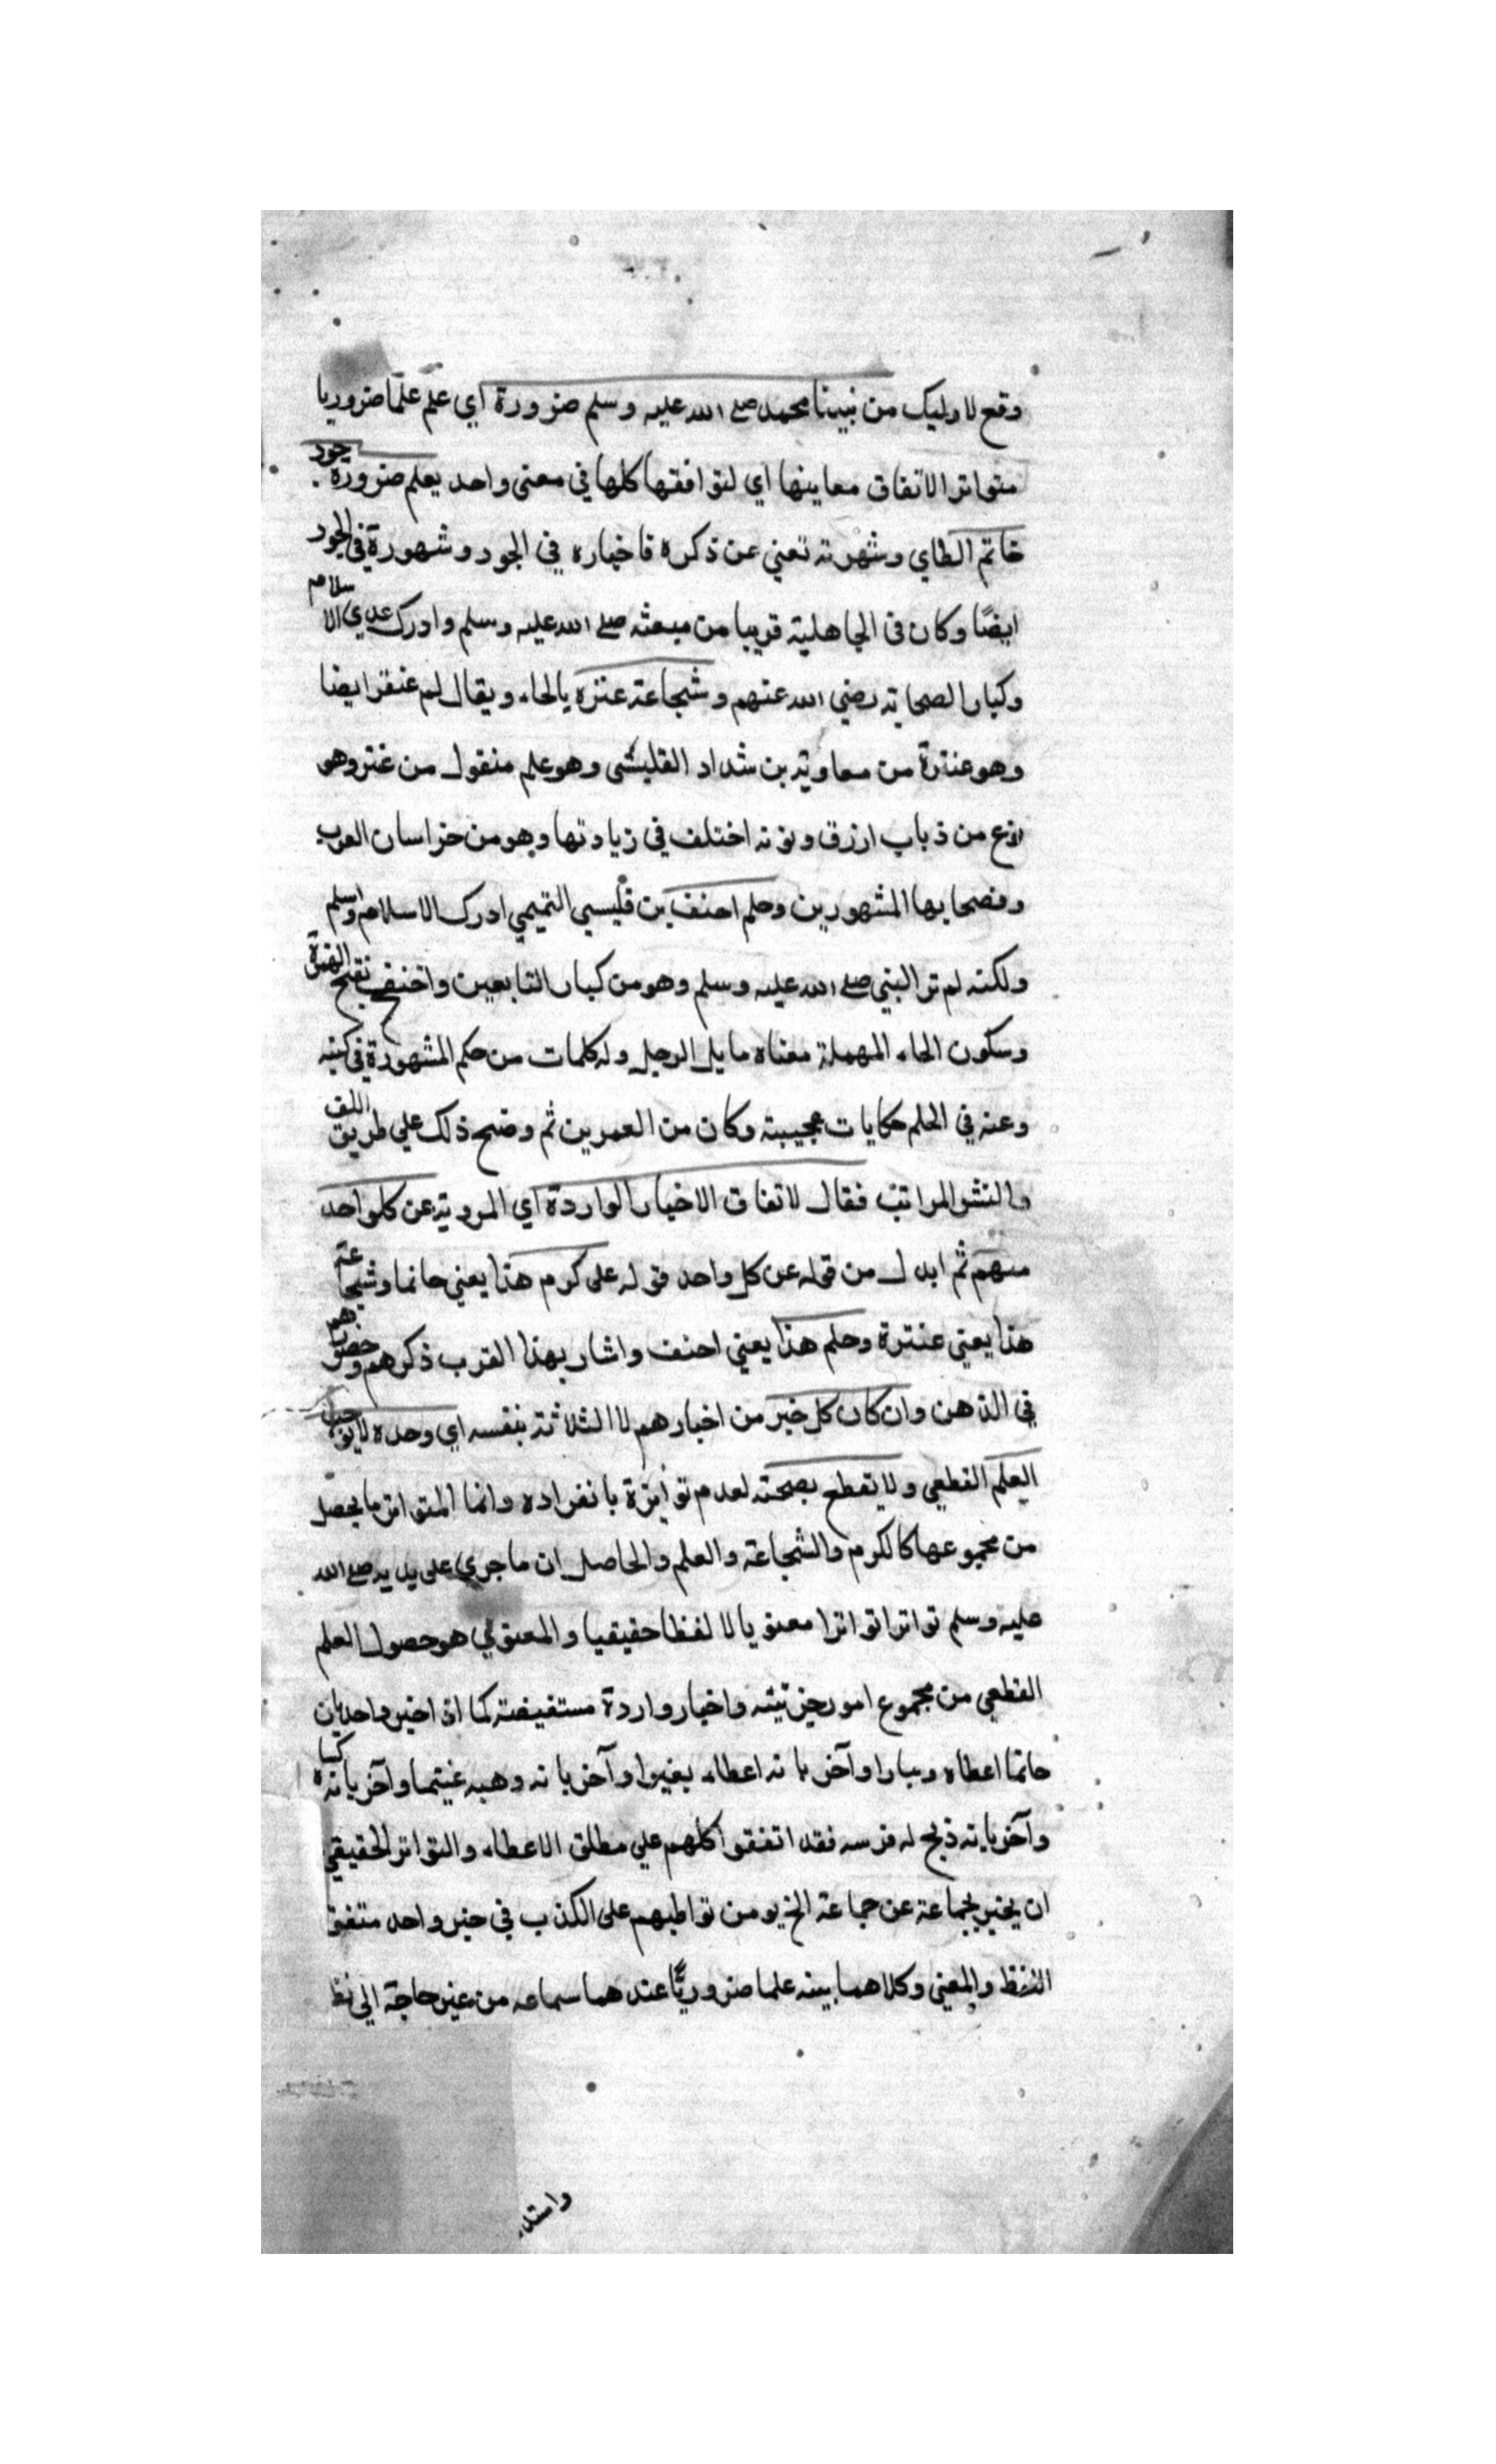 وقع لاوليك من نبينا محمد صلے الله عليه وسلم ضرورة اي علم علما ضروريا
متواتر الاتفاق معاينها اي لتوافقها كلها في معنى واحد يعلم ضرورة جود
خاتم الطاي وشهرته تعني عن ذكره فاخباره في الجود وشهورة في الجود
ايضًا وكان فى الجاهلية قريبا من مبعثه صلے الله عليه وسلم وادرك عدي الاسلام
وكبار الصحابة رضي الله عنهم وشجاعة عنتره بالحاء ويقال لم عنقر ايضا
وهو عنترة من معاوية بن شداد القليشى وهو علم منقول من عنتر وهو
نوع من ذباب ازرق ونونه اختلف في زيادتها وهو من خراسان العرب
وفصحابها المشهورين وحلم احنف بن قليسي التميمي ادرك الاسلام واسلم
ولكنه لم تر البني صلے الله عليه وسلم وهو من كبار التابعين واحنف بفتح الهمزة
وسكون الحاء المهملة معناه مايل الرجل وله كلمات من حكم المشهورة في كتبه
وعنه في الحلم حكايات عجيبة وكان من العمرين ثم وضح ذلك علي طريق اللف
والنشر المراتب فقال لاتفاق الاخبار الواردة اي المروية عن كل واحد
منهم ثم ابدل من قوله عن كل واحد قوله على كرم هذا يعني حاتما وشجاعة
هذا يعني عنترة وحلم هذا يعني احنف واشار بهذا القرب ذكرهم وحضورهم
في الذهن وان كان كل خبر من اخبارهم لا الثلاثة بنفسه اي وحده لا يوجب
العلم القطعي ولا يقطع بصحته لعدم تواترة بانفراده وانما المتواتر ما يحصل
من مجموعها كالكرم والشجاعة والعلم والحاصل ان ما جري على يديه صلے الله
عليه وسلم تواترا تواترا معنويا لا لفظا حقيقيا والمعنوي هو حصول العلم
القطعي من مجموع امور جزئيته واخبار واردة مستفيضة كما اذ اخبر واحد بان
حاتما اعطاه دينارا وآخر بانه اعطاء بعيرا وآخر بانه وهبه غيتما وآخر بانه كساه
وآخر بانه ذبح له فرسه فقد اتفقوا كلهم علي مطلق الاعطاء والتواتر الحقيقي
ان يخبر بجماعة عن جماعة الخ يومن تواطيهم على الكذب في خبر واحد متفق
اللفظ والمعني وكلاهما بينه علما ضروريًا عند هما سماعه من غير حاجة الي نظ
واستد